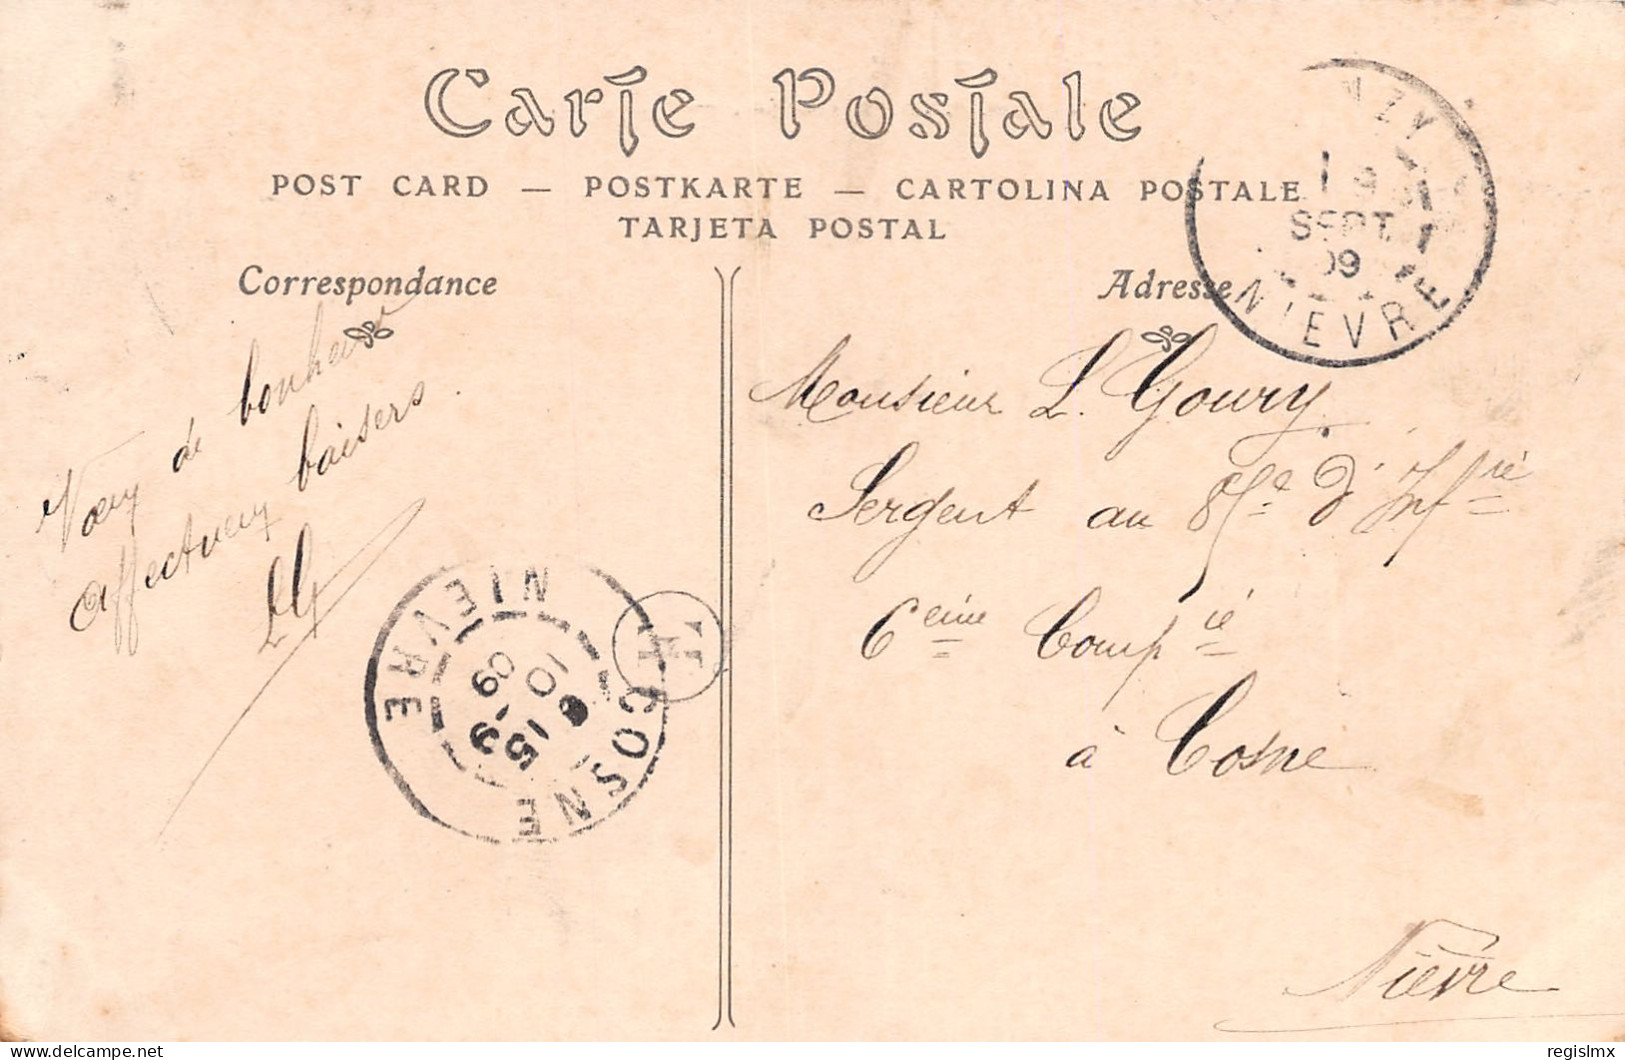 Carte Postale
POST CARD — POSTKARTE — CARTOLINA POSTALE
TARJETA POSTAL
Correspondance
Adresse
NZY
SEPT.
09
NIEVRE
Voeux de bonheur
affectueux baisers.
LG
Monsieur L. Goury
Sergent au 85e d'Infrie
6eme Compie
à Cosne
Nièvre
COSNE
NIEVRE
15
10
09
delcampe.net
regislmx